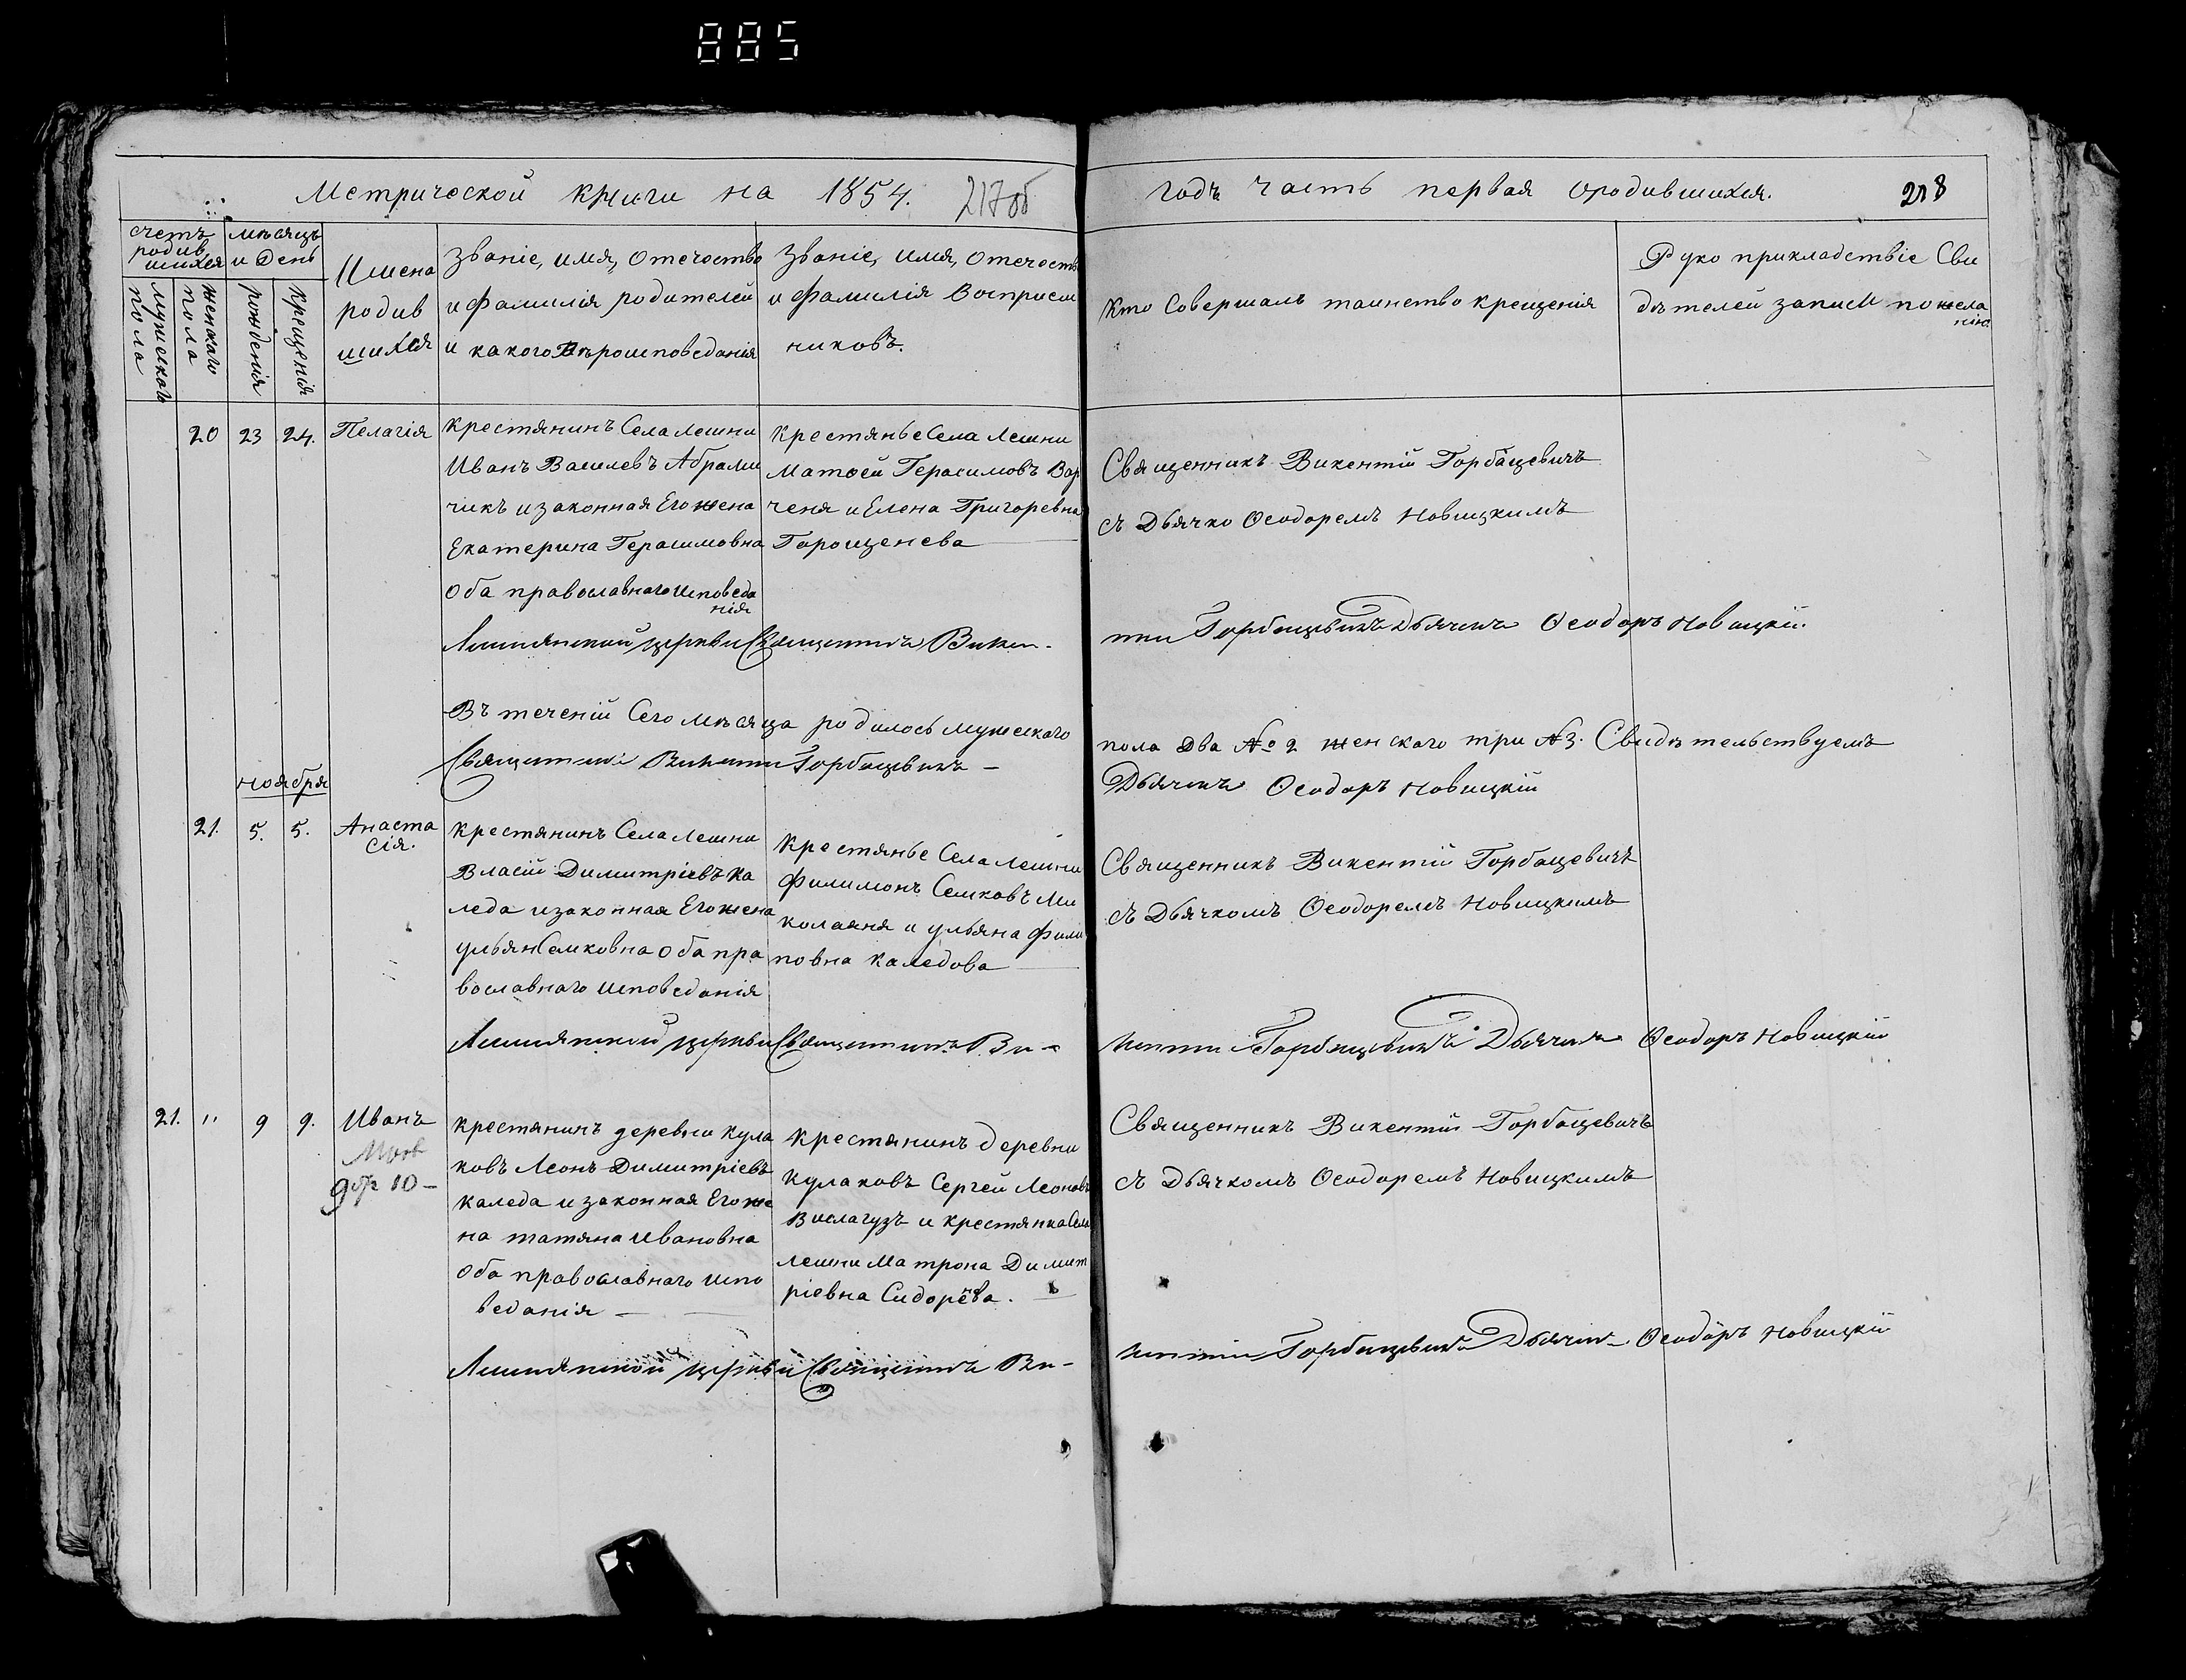 885
Метрической книги на 1854. 217об
годъ часть первая ородившихся. 218
счетъ родив шихся
мѣсяцъ и день
мужескаго пола
женскаго пола
рождения
крещенія
Имена
родив
шихся
Званіе, имя, Отечество
и фамилія родителей
и какого Вѣроисповеданія
Званіе, имя, Отечеств
и фамилія Восприем
никовъ.
Кто Совершалъ таинство крещенія
Руко прикладствіе Сви
дѣтелей записи по жела
нію
20 23 24. Пелагія
крестянинъ Села Лешни
Иванъ Василевъ Абрами
чикъ и законная Его жена
Екатерина Герасимовна
Оба православнаго исповеда
нія
Крестянье Села Лешни
Матѳей Герасимовъ Вар
ченя и Елена Григоревна
Горощенева
Священникъ Викентій Горбацевичъ
съ Дьячко Ѳеодоремъ Новицкимъ
Лешнянской церкви Священникъ Викен-
тий Горбацевичъ Дьячекъ Ѳеодоръ Новицкій.
Въ теченій Сего мѣсяца родилось мужескаго
пола два №2 женскаго три №3. Свидѣтельствуемъ
Священникъ Викентий Горбацевичъ
Дьячекъ Ѳеодоръ Новицкій
Ноября
21. 5. 5. Анаста
сія.
крестянинъ Села Лешни
Власій Димитріевъ Ка
леда и законная Его жена
ульян Семковна Оба пра
вославнаго исповеданія
Крестянье Села Лешни
Филимонъ Семковъ Ми
колаеня и ульяна Фили
повна Каледова
Священникъ Викентій Горбацевичъ
съ Дьячкомъ Ѳеодоремъ Новицкимъ
Лешнянской церкви Священникъ Ви-
кентий Горбацевичъ Дьячекъ Ѳеодоръ Новицкій
21. " 9 9. Иванъ
10
крестянинъ деревни Кула
ковъ Леонъ Димитріевъ
Каледа и законная Его же
на татяна Ивановна
Оба православнаго испо
веданія
Крестянинъ деревни
Кулаковъ Сергей Леоновъ
Вислагузъ и крестянка Села
Лешни Матрона Димит
ріевна Сидорёва.
Священникъ Викентій Горбацевичъ
съ Дьячкомъ Ѳеодоремъ Новицкимъ
Лешнянской церкви Священникъ Ви-
кентий Горбацевичъ Дьячекъ Ѳеодоръ Новицкій